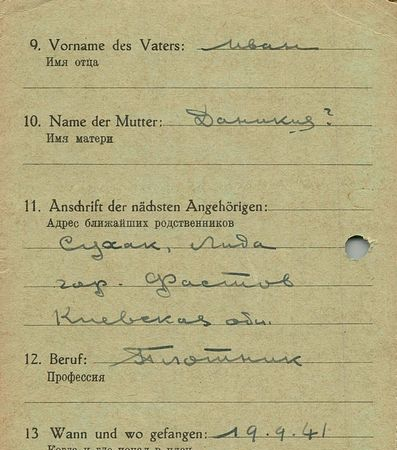 9. Vorname des Vaters: Иван
Имя отца
10. Name der Mutter: Даникия?
Имя матери
11. Anschrift der nächsten Angehörigen:
Адрес ближайших родственников
Сухак, Лида
гор. Фастов
Киевская обл.
12. Beruf: Плотник
Профессия
13 Wann und wo gefangen: 19.9.41
Когда и где попал в плен